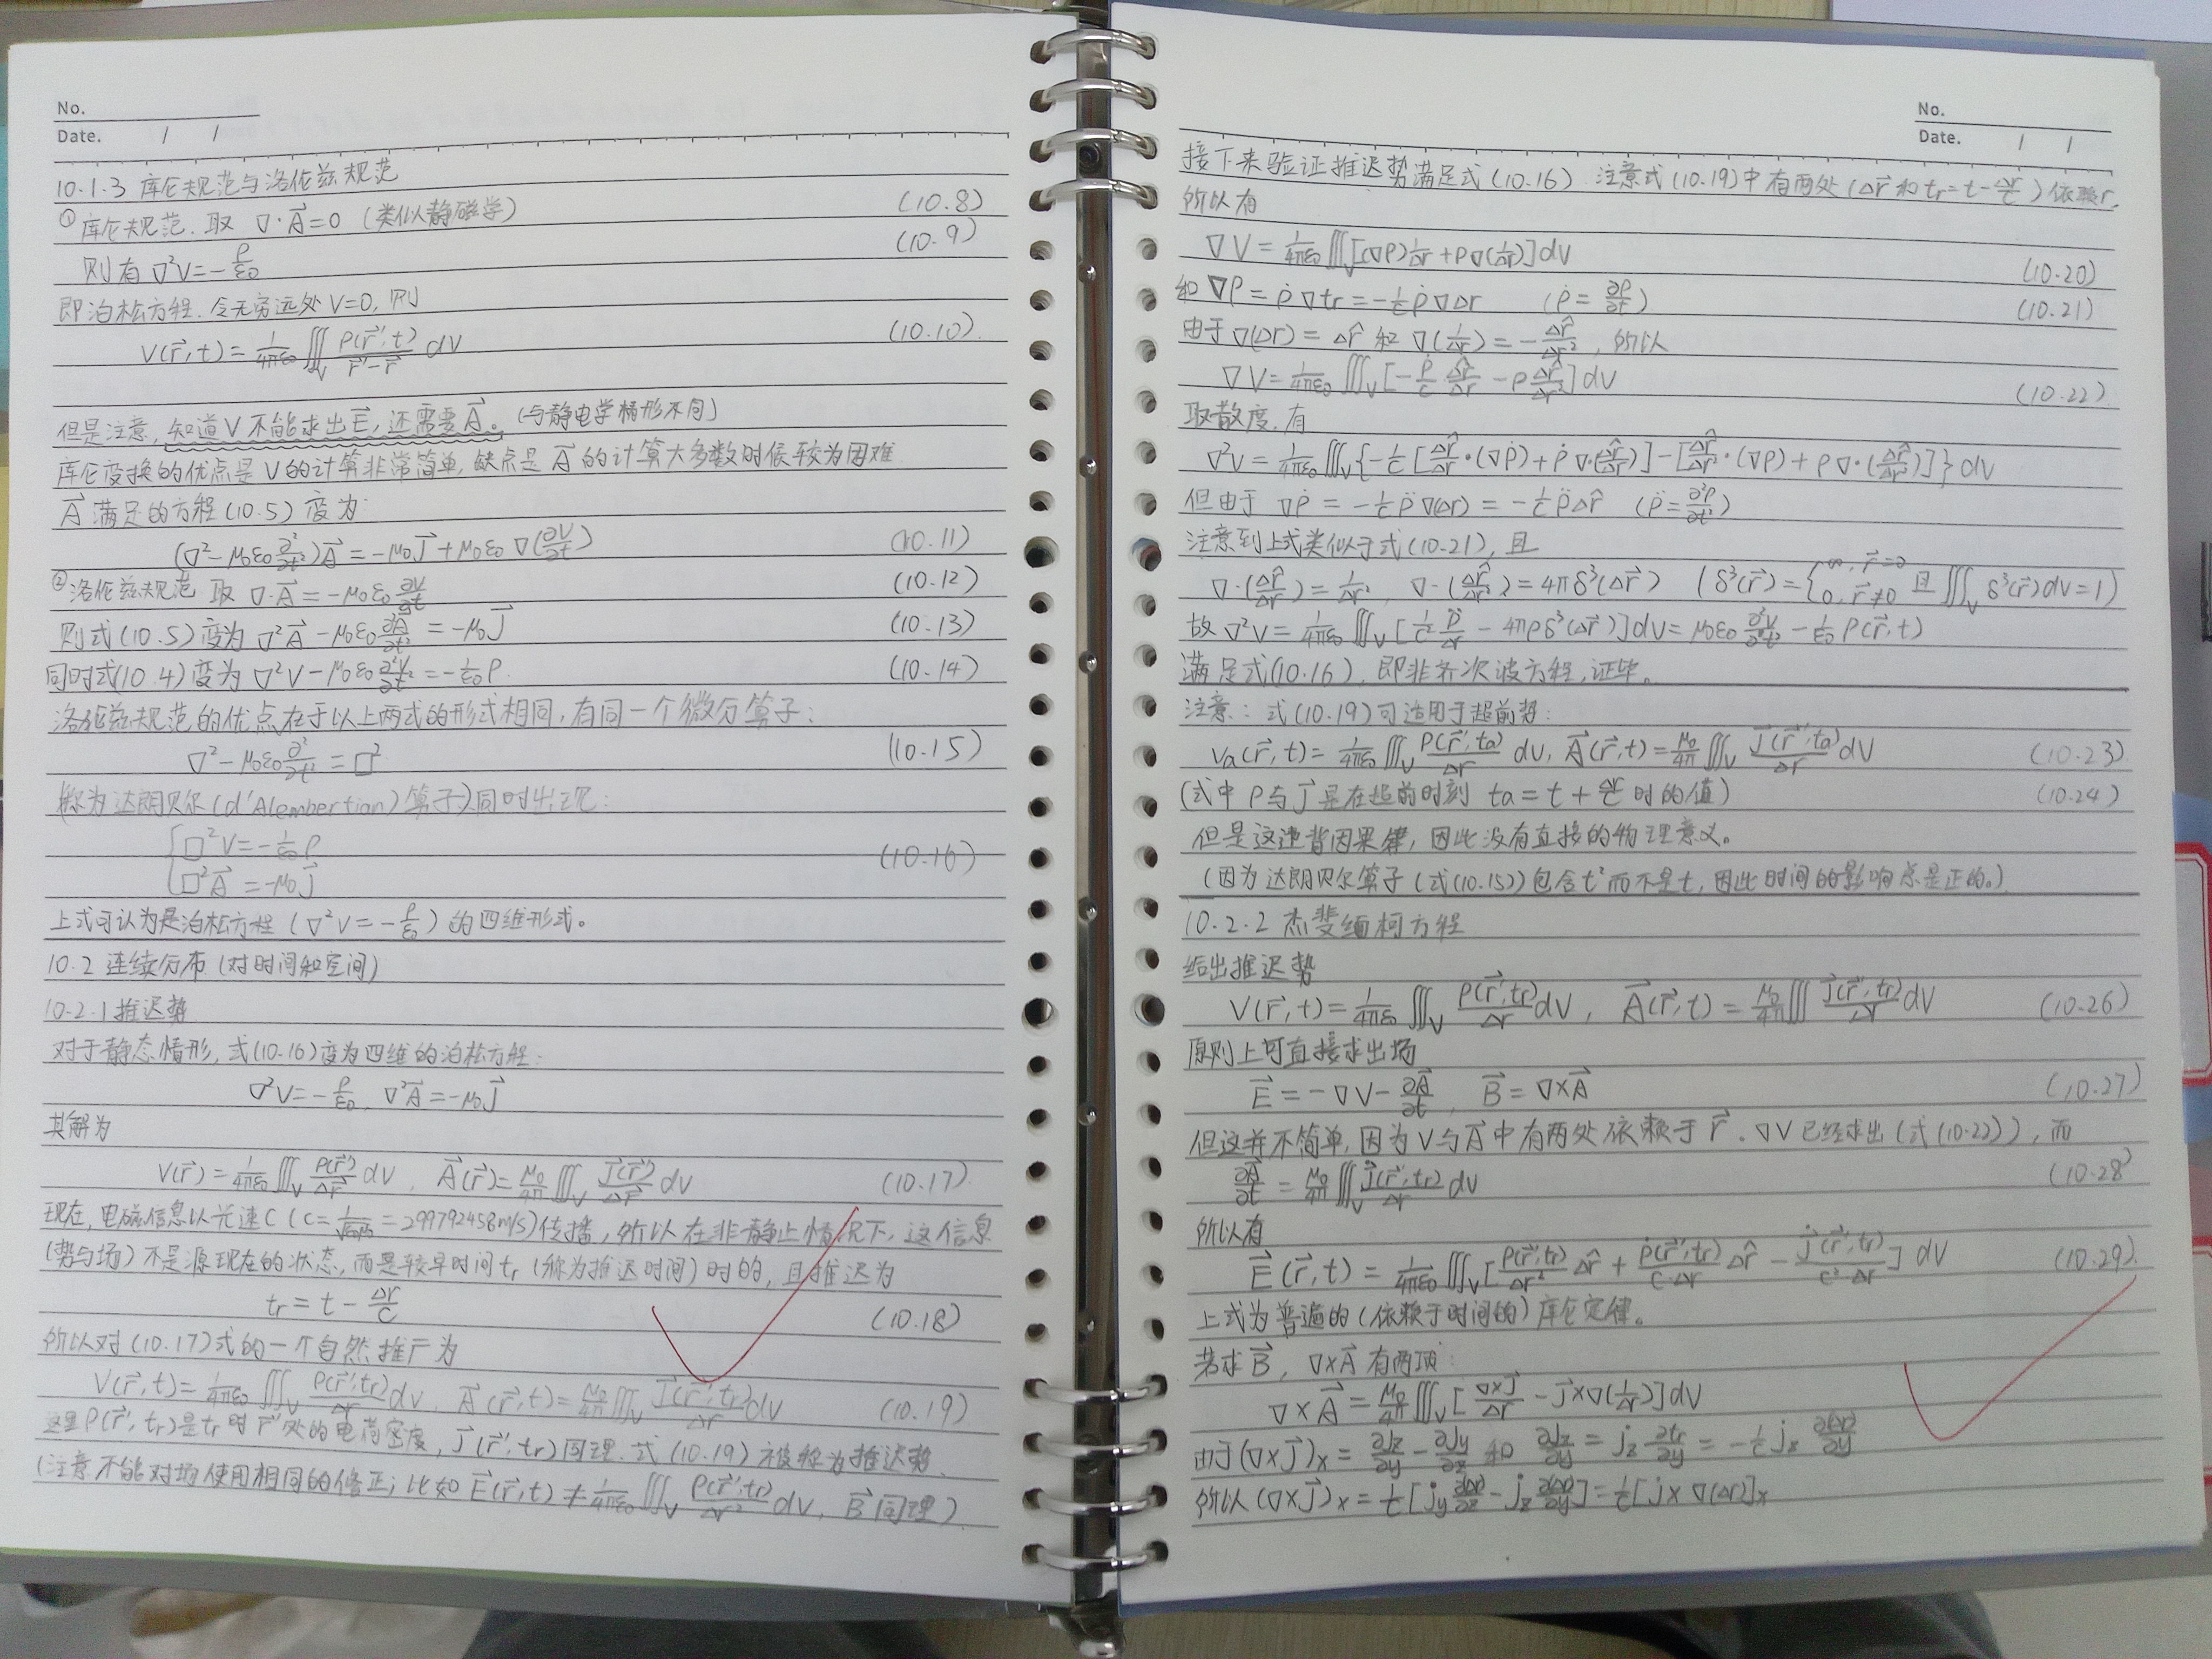 No.
Date. / /
10.1.3 库仑规范与洛伦兹规范
①库仑规范. 取 ∇·A⃗=0 (类似静磁学) (10.8)
则有 ∇²V=-ρ/ε₀ (10.9)
即泊松方程. 令无穷远处 V=0, 则
V(r⃗,t)=1/4πε₀ ∭_V ρ(r⃗′,t)/(r⃗′-r⃗) dV (10.10)
但是注意, 知道V不能求出E⃗, 还需要A⃗。(与静电学情形不同)
库仑变换的优点是V的计算非常简单, 缺点是A⃗的计算大多数时候较为困难
A⃗满足的方程(10.5)变为:
(∇²-μ₀ε₀∂²/∂t²)A⃗=-μ₀J⃗+μ₀ε₀∇(∂V/∂t) (10.11)
②洛伦兹规范 取 ∇·A⃗=-μ₀ε₀∂V/∂t (10.12)
则式(10.5)变为 ∇²A⃗-μ₀ε₀∂²A⃗/∂t²=-μ₀J⃗ (10.13)
同时式(10.4)变为 ∇²V-μ₀ε₀∂²V/∂t²=-1/ε₀ρ. (10.14)
洛伦兹规范的优点在于以上两式的形式相同, 有同一个微分算子:
∇²-μ₀ε₀∂²/∂t²=□² (10.15)
(称为达朗贝尔(d'Alembertian)算子)同时出现:
{□²V=-1/ε₀ρ
□²A⃗=-μ₀J⃗ (10.16)
上式可认为是泊松方程(∇²V=-ρ/ε₀)的四维形式。
10.2 连续分布(对时间和空间)
10.2.1 推迟势
对于静态情形, 式(10.16)变为四维的泊松方程:
∇²V=-ρ/ε₀, ∇²A⃗=-μ₀J⃗
其解为
V(r⃗)=1/4πε₀ ∭_V ρ(r⃗′)/Δr⃗ dV, A⃗(r⃗)=μ₀/4π ∭_V J⃗(r⃗′)/Δr⃗ dV (10.17)
现在, 电磁信息以光速C(C=1/√ε₀μ₀=299792458m/s)传播, 所以在非静止情况下, 这信息
(势与场)不是源现在的状态, 而是较早时间tr(称为推迟时间)时的, 且推迟为
tr=t-Δr/C (10.18)
所以对(10.17)式的一个自然推广为
V(r⃗,t)=1/4πε₀ ∭_V ρ(r⃗′,tr)/Δr dV, A⃗(r⃗,t)=μ₀/4π ∭_V J⃗(r⃗′,tr)/Δr dV (10.19)
这里ρ(r⃗′,tr)是tr时r⃗′处的电荷密度, J⃗(r⃗′,tr)同理. 式(10.19)被称为推迟势.
(注意不能对场使用相同的修正; 比如E⃗(r⃗,t)≠1/4πε₀ ∭ ρ(r⃗′,tr)/Δr² dV, B⃗同理)
No.
Date. / /
接下来验证推迟势满足式(10.16). 注意式(10.19)中有两处(Δr⃗和tr=t-Δr/c)依赖r,
所以有
∇V=1/4πε₀ ∭_V[(∇ρ)1/Δr+ρ∇(1/Δr)]dV (10.20)
和 ∇ρ=ρ̇∇tr=-1/c ρ̇∇Δr (ρ̇=∂ρ/∂t) (10.21)
由于∇(Δr)=Δr̂ 和 ∇(1/Δr)=-Δr̂/Δr², 所以
∇V=1/4πε₀ ∭_V[-ρ̇/c Δr̂/Δr-ρΔr̂/Δr²]dV (10.22)
取散度, 有
∇²V=1/4πε₀ ∭_V{-1/c[Δr̂/Δr·(∇ρ̇)+ρ̇∇·(Δr̂/Δr)]-[Δr̂/Δr²·(∇ρ)+ρ∇·(Δr̂/Δr²)]}dV
但由于 ∇ρ̇=-1/c ρ̈∇(Δr)=-1/c ρ̈Δr̂ (ρ̈=∂²ρ/∂t²)
注意到上式类似于式(10.21), 且
∇·(Δr̂/Δr)=1/Δr², ∇·(Δr̂/Δr²)=4πδ³(Δr⃗) (δ³(r⃗)={∞, r⃗=0 0, r⃗≠0 且∭_V δ³(r⃗)dV=1)
故∇²V=1/4πε₀ ∭_V[1/c² ρ̈/Δr-4πρδ³(Δr⃗)]dV=μ₀ε₀∂²V/∂t²-1/ε₀ρ(r⃗,t)
满足式(10.16), 即非齐次波方程, 证毕。
注意: 式(10.19)可适用于超前势:
Va(r⃗,t)=1/4πε₀ ∭_V ρ(r⃗′,ta)/Δr dV, A⃗(r⃗,t)=μ₀/4π ∭_V J⃗(r⃗′,ta)/Δr dV (10.23)
(式中ρ与J⃗是在超前时刻 ta=t+Δr/c 时的值) (10.24)
但是这违背因果律, 因此没有直接的物理意义。
(因为达朗贝尔算子(式(10.15))包含t²而不是t, 因此时间的影响总是正的。)
10.2.2 杰斐缅柯方程
给出推迟势
V(r⃗,t)=1/4πε₀ ∭_V ρ(r⃗′,tr)/Δr dV, A⃗(r⃗,t)=μ₀/4π ∭ J⃗(r⃗′,tr)/Δr dV (10.26)
原则上可直接求出场
E⃗=-∇V-∂A⃗/∂t, B⃗=∇×A⃗ (10.27)
但这并不简单, 因为V与A⃗中有两处依赖于r⃗. ∇V已经求出(式(10.22)), 而
∂A⃗/∂t=μ₀/4π ∭_V J̇⃗(r⃗′,tr)/Δr dV (10.28)
所以有
E⃗(r⃗,t)=1/4πε₀ ∭_V[ρ(r⃗′,tr)/Δr² Δr̂+ρ̇(r⃗′,tr)/(c·Δr) Δr̂-J̇⃗(r⃗′,tr)/(c²·Δr)]dV (10.29)
上式为普遍的(依赖于时间的)库仑定律。
若求B⃗, ∇×A⃗有两项:
∇×A⃗=μ₀/4π ∭_V[∇×J⃗/Δr-J⃗×∇(1/Δr)]dV
由于(∇×J⃗)x=∂Jz/∂y-∂Jy/∂z 和 ∂Jz/∂y=J̇z ∂tr/∂y=-1/c J̇z ∂(Δr)/∂y
所以(∇×J⃗)x=1/c[J̇y ∂(Δr)/∂z-J̇z ∂(Δr)/∂y]=1/c[J̇×∇(Δr)]x